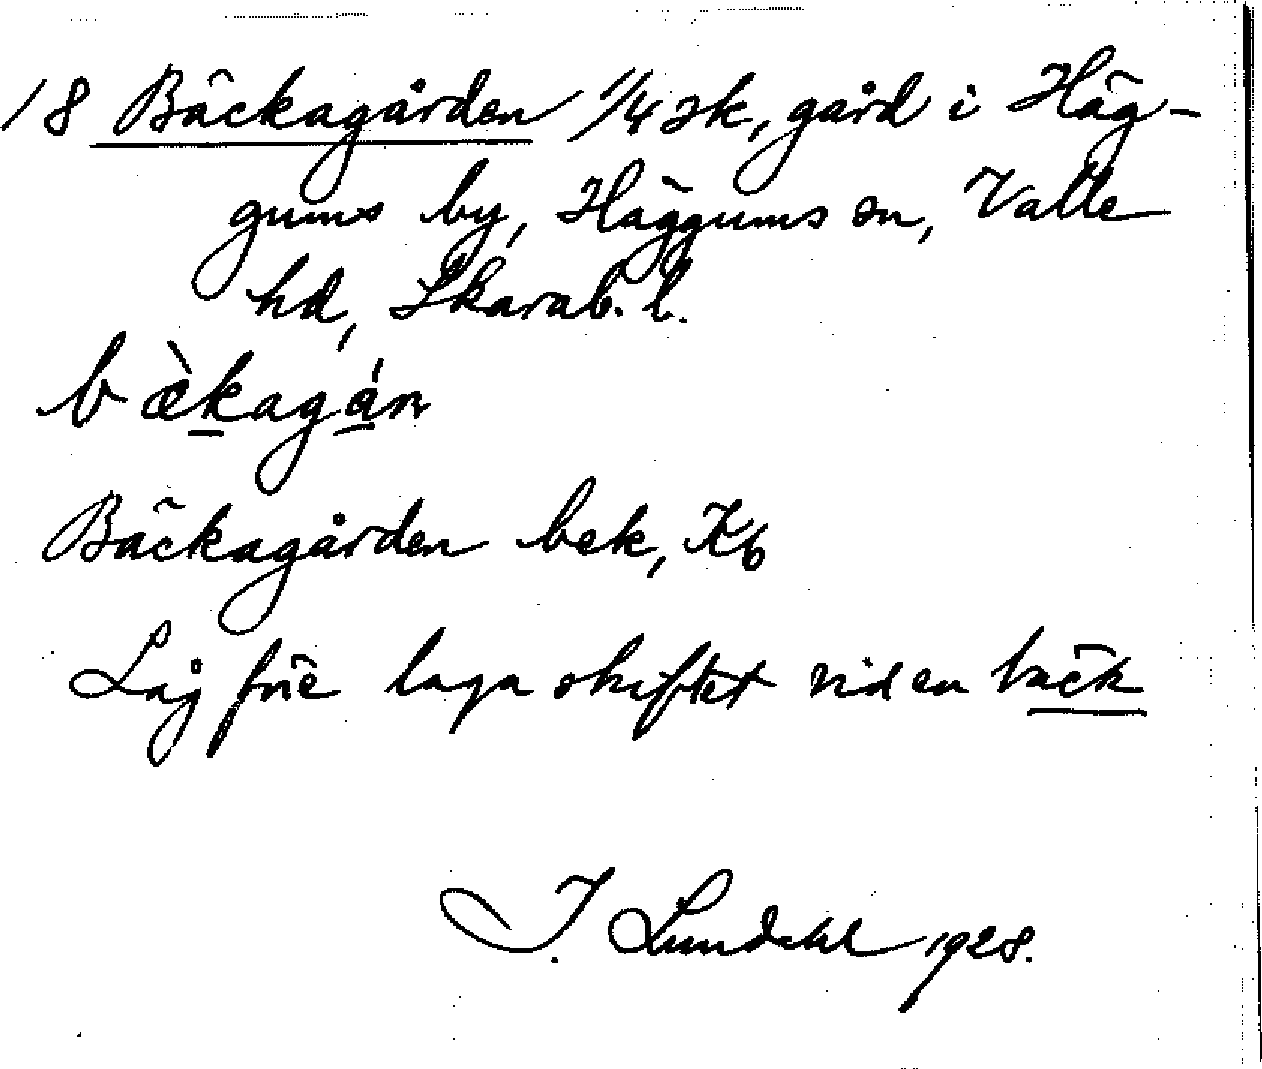 18 Bäckagården 1/4 sk, gård i Häg-
gums by, Häggums sn, Valle
hd, Skarab. l.
bæ̀kagán
Bäckagården bek, Kb
Låg före laga skiftet vid en bäck
I. Lundahl 1928.